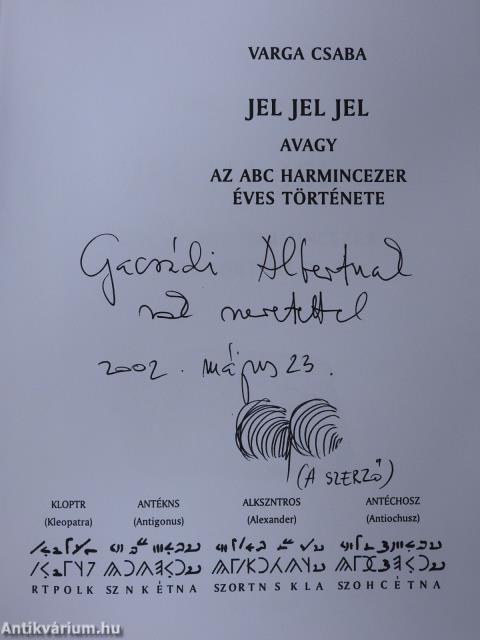 VARGA CSABA
JEL JEL JEL
AVAGY
AZ ABC HARMINCEZER
ÉVES TÖRTÉNETE
Gacsádi Albertnak
sok szeretettel
2002. május 23.
(A SZERZŐ)
KLOPTR ANTÉKNS ALKSZNTROS ANTÉCHOSZ
(Kleopatra) (Antigonus) (Alexander) (Antiochusz)
RTPOLK SZNKÉTNA SZORTNSKLA SZOHCÉTNA
Antikvárium.hu